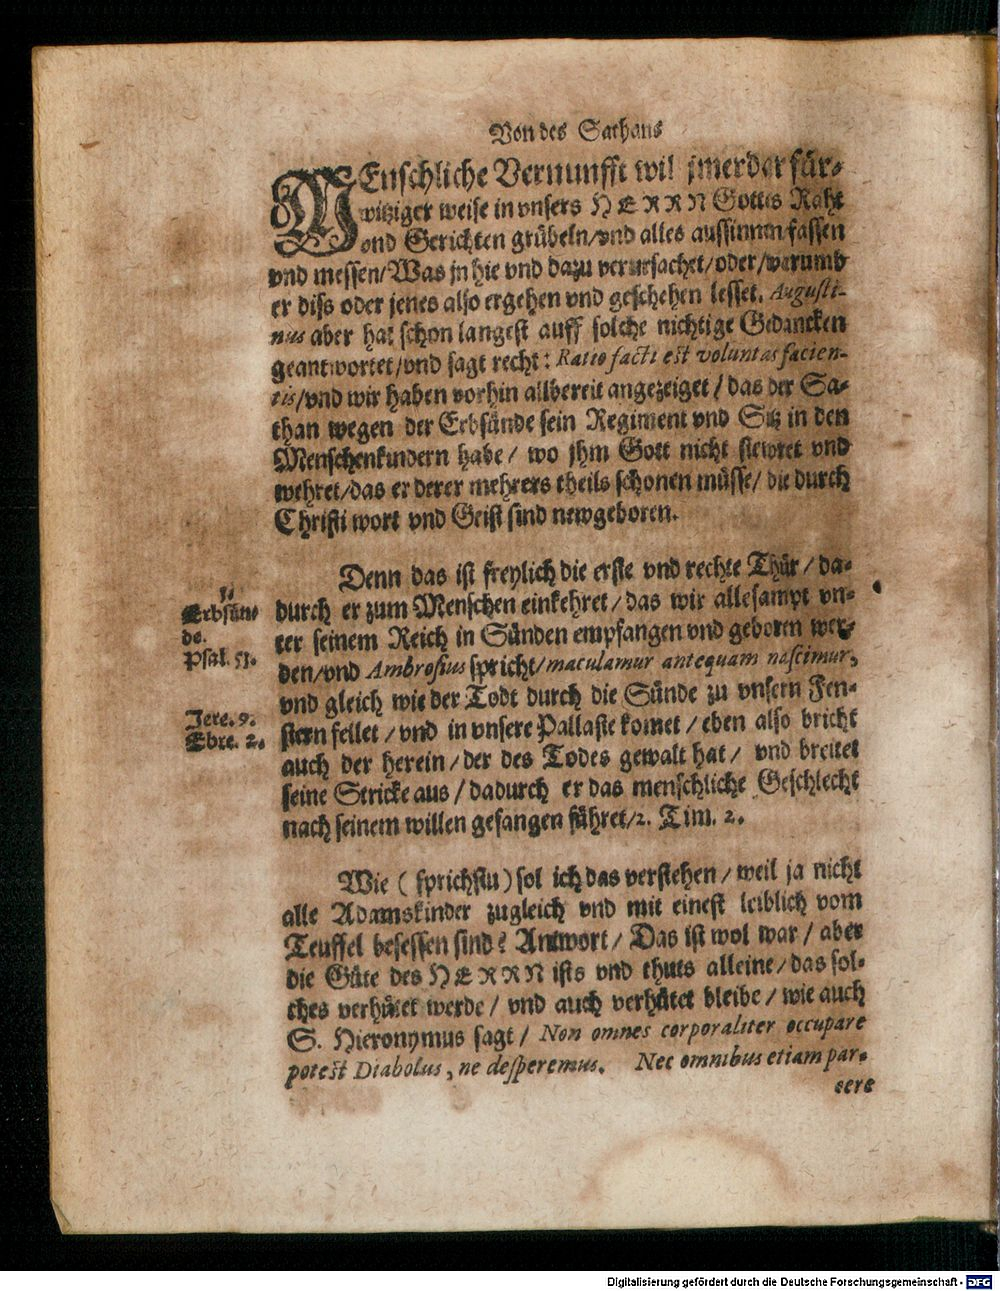 Von des Sathans
MEnschliche Vernunfft wil jmerdar für-
witziger weise in vnsers HERRN Gottes Raht
vnd Gerichten grübeln/vnd alles aussinnen fassen
vnd messen/Was jn hie vnd dazu verursachet/oder/warumb
er diss oder jenes also ergehen vnd geschehen lesset. Augusti-
nus aber hat schon langest auff solche nichtige Gedancken
geantwortet/vnd sagt recht: Ratio facti est voluntas facien-
tis/vnd wir haben vorhin allbereit angezeiget/das der Sa-
than wegen der Erbsünde sein Regiment vnd Sitz in den
Menschenkindern habe/ wo jhm Gott nicht stewret vnd
wehret/das er derer mehrers theils schonen müsse/ die durch
Christi wort vnd Geist sind newgeboren.
Denn das ist freylich die erste vnd rechte Thür/da-
durch er zum Menschen einkehret/das wir allesampt vn-
ter seinem Reich in Sünden empfangen vnd geboren wer-
den/vnd Ambrosius spricht/maculamur antequam nascimur,
vnd gleich wie der Todt durch die Sünde zu vnsern Fen-
stern fellet/vnd in vnsere Pallaste komet/eben also bricht
auch der herein/der des Todes gewalt hat/ vnd breitet
seine Stricke aus/dadurch er das menschliche Geschlecht
nach seinem willen gefangen führet/2. Tim. 2.
1.
Erbsün-
de.
Psal. 51.
Jere. 9.
Ebre. 2.
Wie (sprichstu) sol ich das verstehen/weil ja nicht
alle Adamskinder zugleich vnd mit einest leiblich vom
Teuffel besessen sind? Antwort/ Das ist wol war/ aber
die Güte des HERRN ists vnd thuts alleine/das sol-
ches verhütet werde/ vnd auch verhütet bleibe/wie auch
S. Hieronymus sagt/ Non omnes corporaliter occupare
potest Diabolus, ne desperemus. Nec omnibus etiam par-
cere
Digitalisierung gefördert durch die Deutsche Forschungsgemeinschaft - DFG